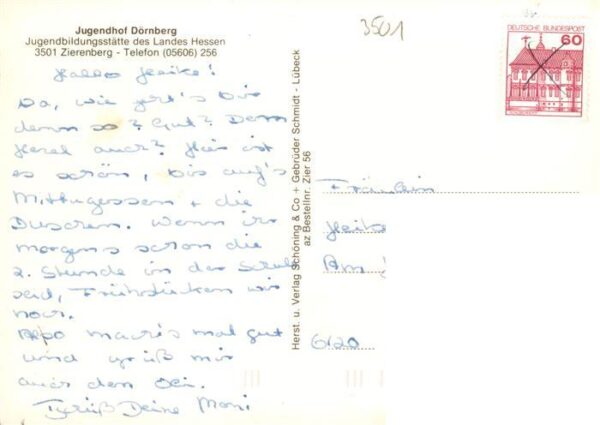 Jugendhof Dörnberg
Jugendbildungsstätte des Landes Hessen
3501 Zierenberg - Telefon (05606) 256
Hallo Heike!
Na, wie geht's Dir
denn so? Gut? Dem
auch? Hier ist
es schön, bis auf's
Mittagessen + die
Duschen. Wenn ihr
morgens schon die
2. Stunde in der Schule
seid, Frühstücken wir
noch.
Also mach's mal gut
und grüß mir
auch den
Tschüß Deine Moni
Herst. u. Verlag Schöning & Co + Gebrüder Schmidt - Lübeck
az Bestellnr. Zier 56
3501
DEUTSCHE BUNDESPOST
60
Fräulein
Heike
Am
6120